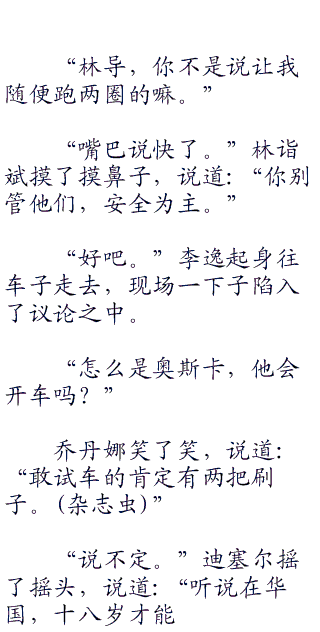 “林导，你不是说让我
随便跑两圈的嘛。”
“嘴巴说快了。”林诣
斌摸了摸鼻子，说道：“你别
管他们，安全为主。”
“好吧。”李逸起身往
车子走去，现场一下子陷入
了议论之中。
“怎么是奥斯卡，他会
开车吗？”
乔丹娜笑了笑，说道：
“敢试车的肯定有两把刷
子。(杂志虫)”
“说不定。”迪塞尔摇
了摇头，说道：“听说在华
国，十八岁才能